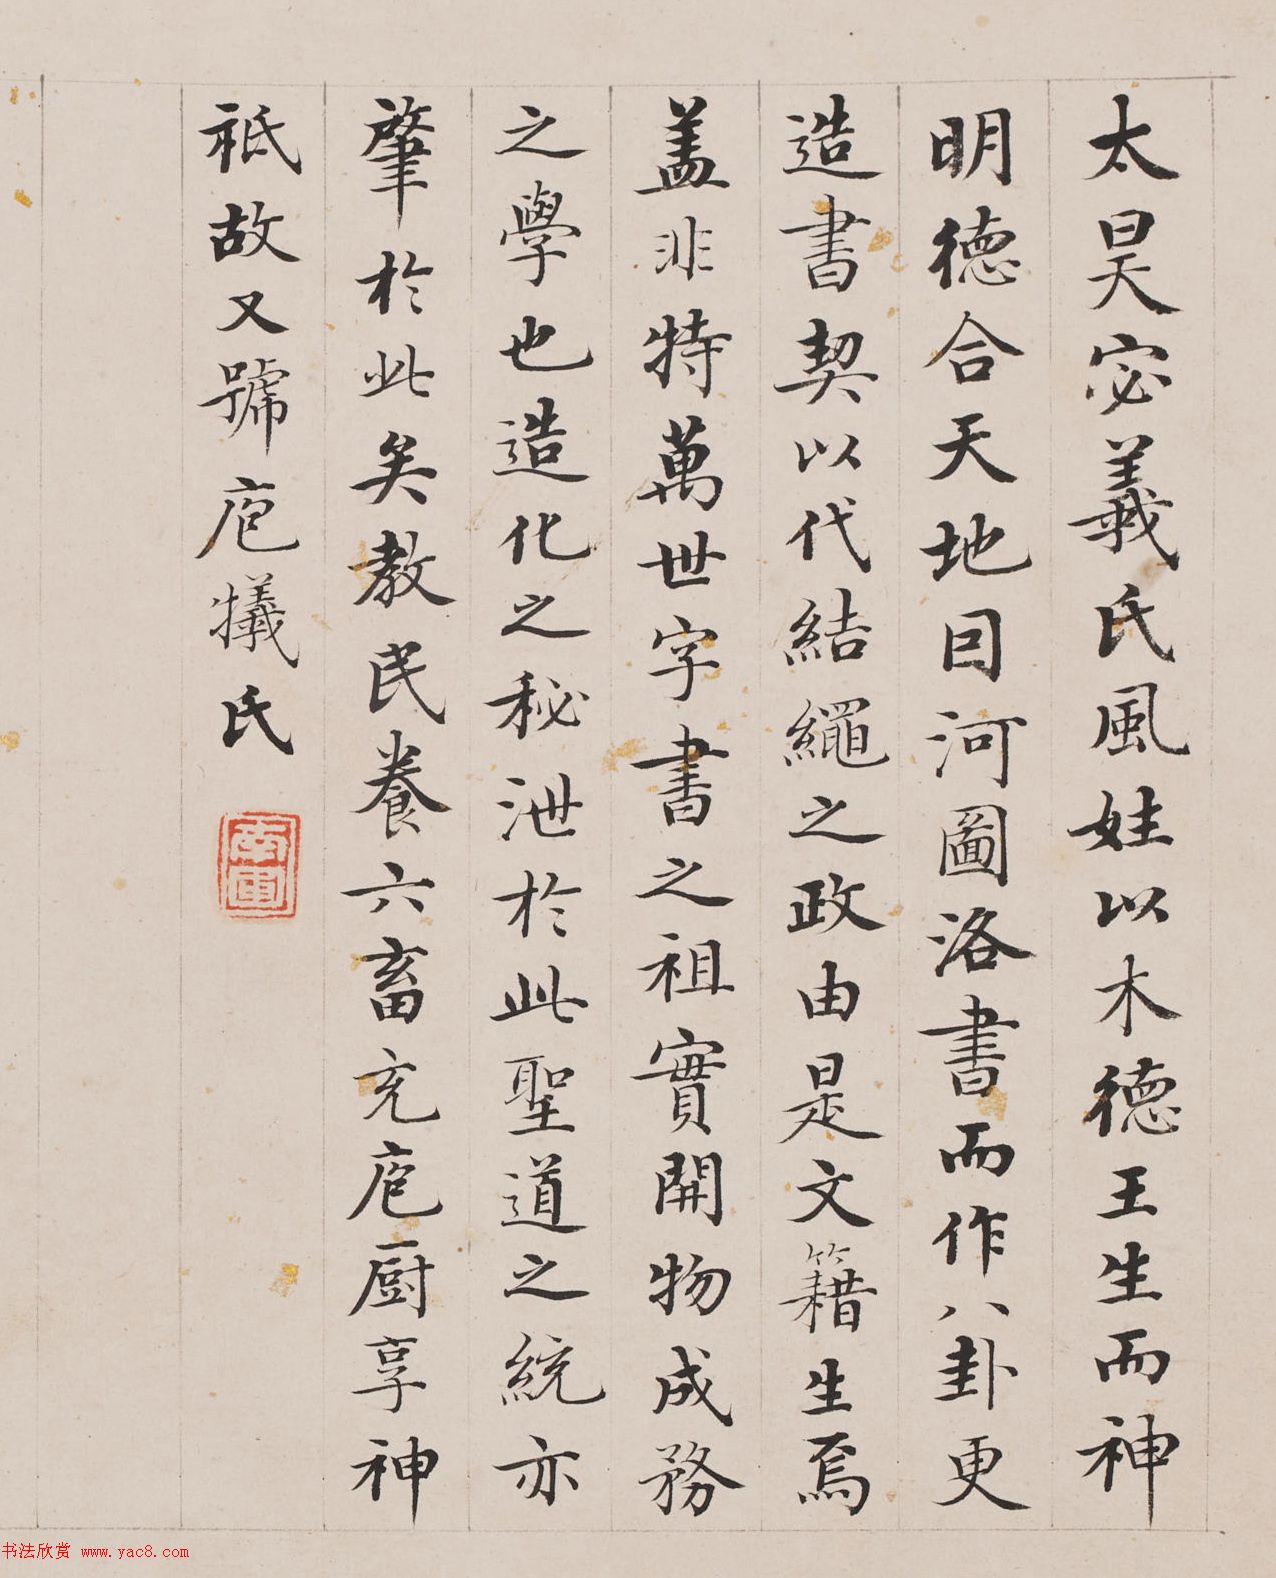 太昊宓羲氏風姓以木德王生而神
明德合天地因河圖洛書而作八卦更
造書契以代結繩之政由是文籍生焉
盖非特萬世字書之祖實開物成務
之學也造化之秘泄於此聖道之統亦
肇於此矣教民養六畜充庖厨享神
祗故又號庖犧氏
书法欣赏 www.yac8.com